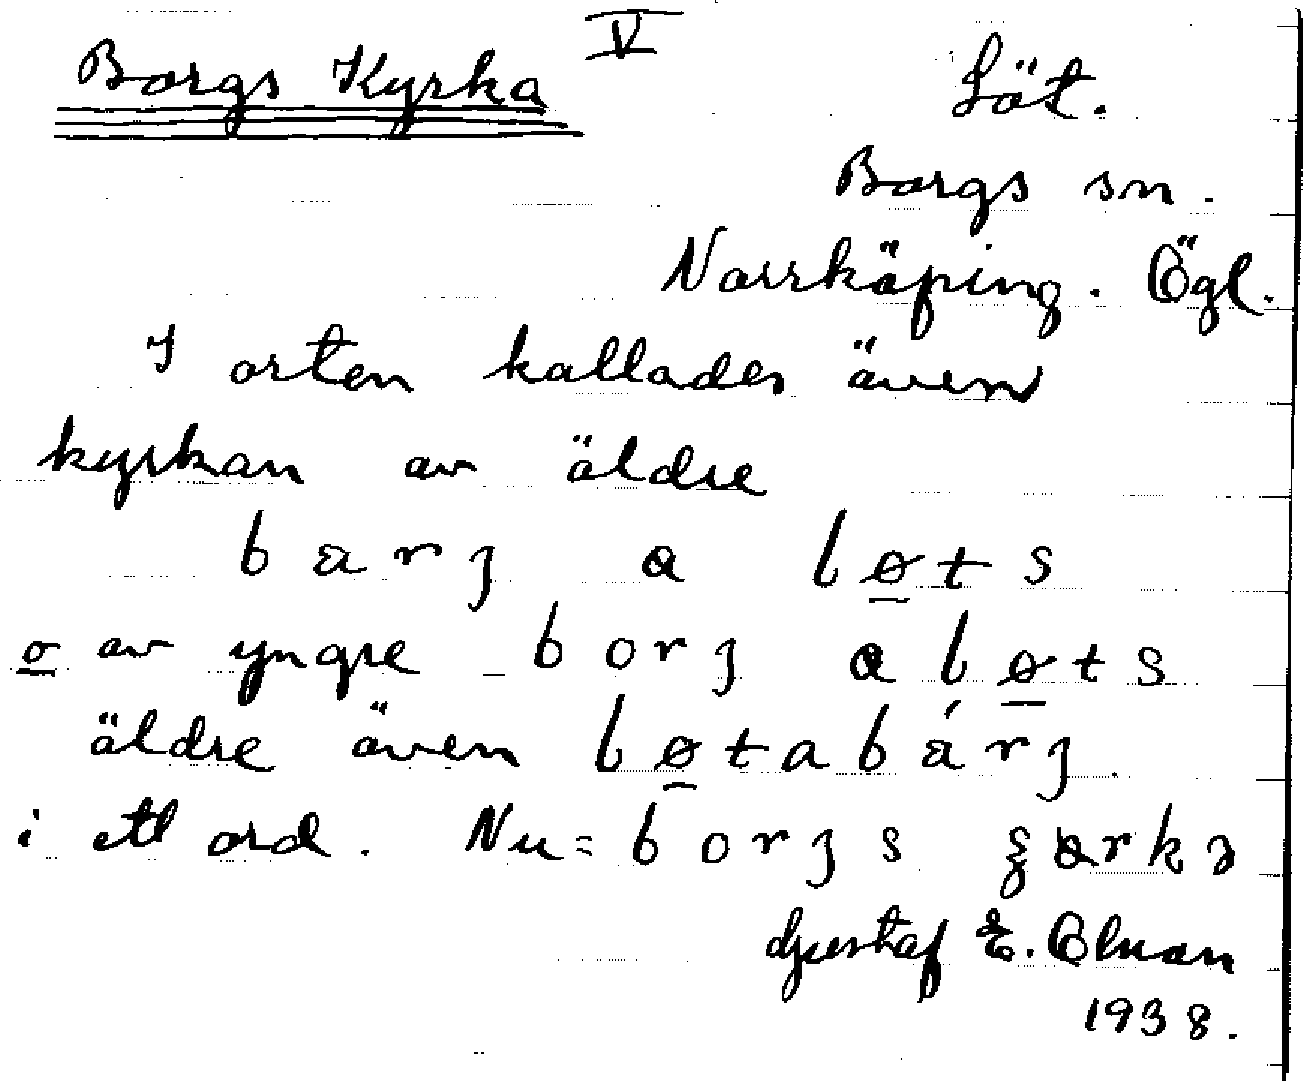 V
Borgs Kyrka
Löt.
Borgs sn.
Norrköping. Ögl.
I orten kallades även
kyrkan av äldre
b a r j a l ø t s
o av yngre b o r j a l ø t s
äldre även l ø t a b á r j
i ett ord. Nu = b o r j s
Gustaf E.
1938.